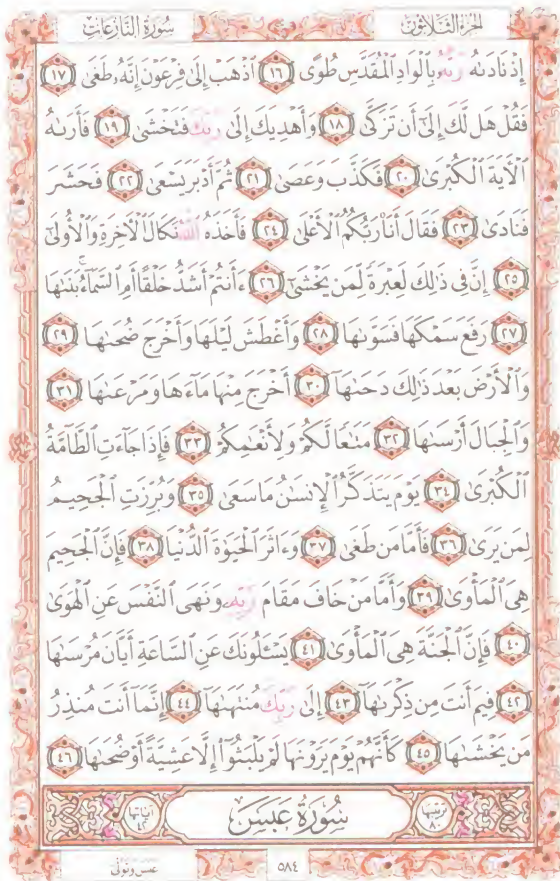 الجزء الثلاثون سورة النازعات
إِذْ نَادَىٰهُ رَبُّهُۥ بِٱلْوَادِ ٱلْمُقَدَّسِ طُوًى ١٦ ٱذْهَبْ إِلَىٰ فِرْعَوْنَ إِنَّهُۥ طَغَىٰ ١٧
فَقُلْ هَل لَّكَ إِلَىٰٓ أَن تَزَكَّىٰ ١٨ وَأَهْدِيَكَ إِلَىٰ رَبِّكَ فَتَخْشَىٰ ١٩ فَأَرَىٰهُ
ٱلْءَايَةَ ٱلْكُبْرَىٰ ٢٠ فَكَذَّبَ وَعَصَىٰ ٢١ ثُمَّ أَدْبَرَ يَسْعَىٰ ٢٢ فَحَشَرَ
فَنَادَىٰ ٢٣ فَقَالَ أَنَا۠ رَبُّكُمُ ٱلْأَعْلَىٰ ٢٤ فَأَخَذَهُ ٱللَّهُ نَكَالَ ٱلْءَاخِرَةِ وَٱلْأُولَىٰٓ
٢٥ إِنَّ فِى ذَٰلِكَ لَعِبْرَةً لِّمَن يَخْشَىٰٓ ٢٦ ءَأَنتُمْ أَشَدُّ خَلْقًا أَمِ ٱلسَّمَآءُ ۚ بَنَىٰهَا
٢٧ رَفَعَ سَمْكَهَا فَسَوَّىٰهَا ٢٨ وَأَغْطَشَ لَيْلَهَا وَأَخْرَجَ ضُحَىٰهَا ٢٩
وَٱلْأَرْضَ بَعْدَ ذَٰلِكَ دَحَىٰهَآ ٣٠ أَخْرَجَ مِنْهَا مَآءَهَا وَمَرْعَىٰهَا ٣١
وَٱلْجِبَالَ أَرْسَىٰهَا ٣٢ مَتَٰعًا لَّكُمْ وَلِأَنْعَٰمِكُمْ ٣٣ فَإِذَا جَآءَتِ ٱلطَّآمَّةُ
ٱلْكُبْرَىٰ ٣٤ يَوْمَ يَتَذَكَّرُ ٱلْإِنسَٰنُ مَا سَعَىٰ ٣٥ وَبُرِّزَتِ ٱلْجَحِيمُ
لِمَن يَرَىٰ ٣٦ فَأَمَّا مَن طَغَىٰ ٣٧ وَءَاثَرَ ٱلْحَيَوٰةَ ٱلدُّنْيَا ٣٨ فَإِنَّ ٱلْجَحِيمَ
هِىَ ٱلْمَأْوَىٰ ٣٩ وَأَمَّا مَنْ خَافَ مَقَامَ رَبِّهِۦ وَنَهَى ٱلنَّفْسَ عَنِ ٱلْهَوَىٰ
٤٠ فَإِنَّ ٱلْجَنَّةَ هِىَ ٱلْمَأْوَىٰ ٤١ يَسْـَٔلُونَكَ عَنِ ٱلسَّاعَةِ أَيَّانَ مُرْسَىٰهَا
٤٢ فِيمَ أَنتَ مِن ذِكْرَىٰهَآ ٤٣ إِلَىٰ رَبِّكَ مُنتَهَىٰهَآ ٤٤ إِنَّمَآ أَنتَ مُنذِرُ
مَن يَخْشَىٰهَا ٤٥ كَأَنَّهُمْ يَوْمَ يَرَوْنَهَا لَمْ يَلْبَثُوٓا۟ إِلَّا عَشِيَّةً أَوْ ضُحَىٰهَا ٤٦
ترتيبها ٨٠ سُورَةُ عَبَسَ آياتها ٤٢
٥٨٤ عبس وتولى